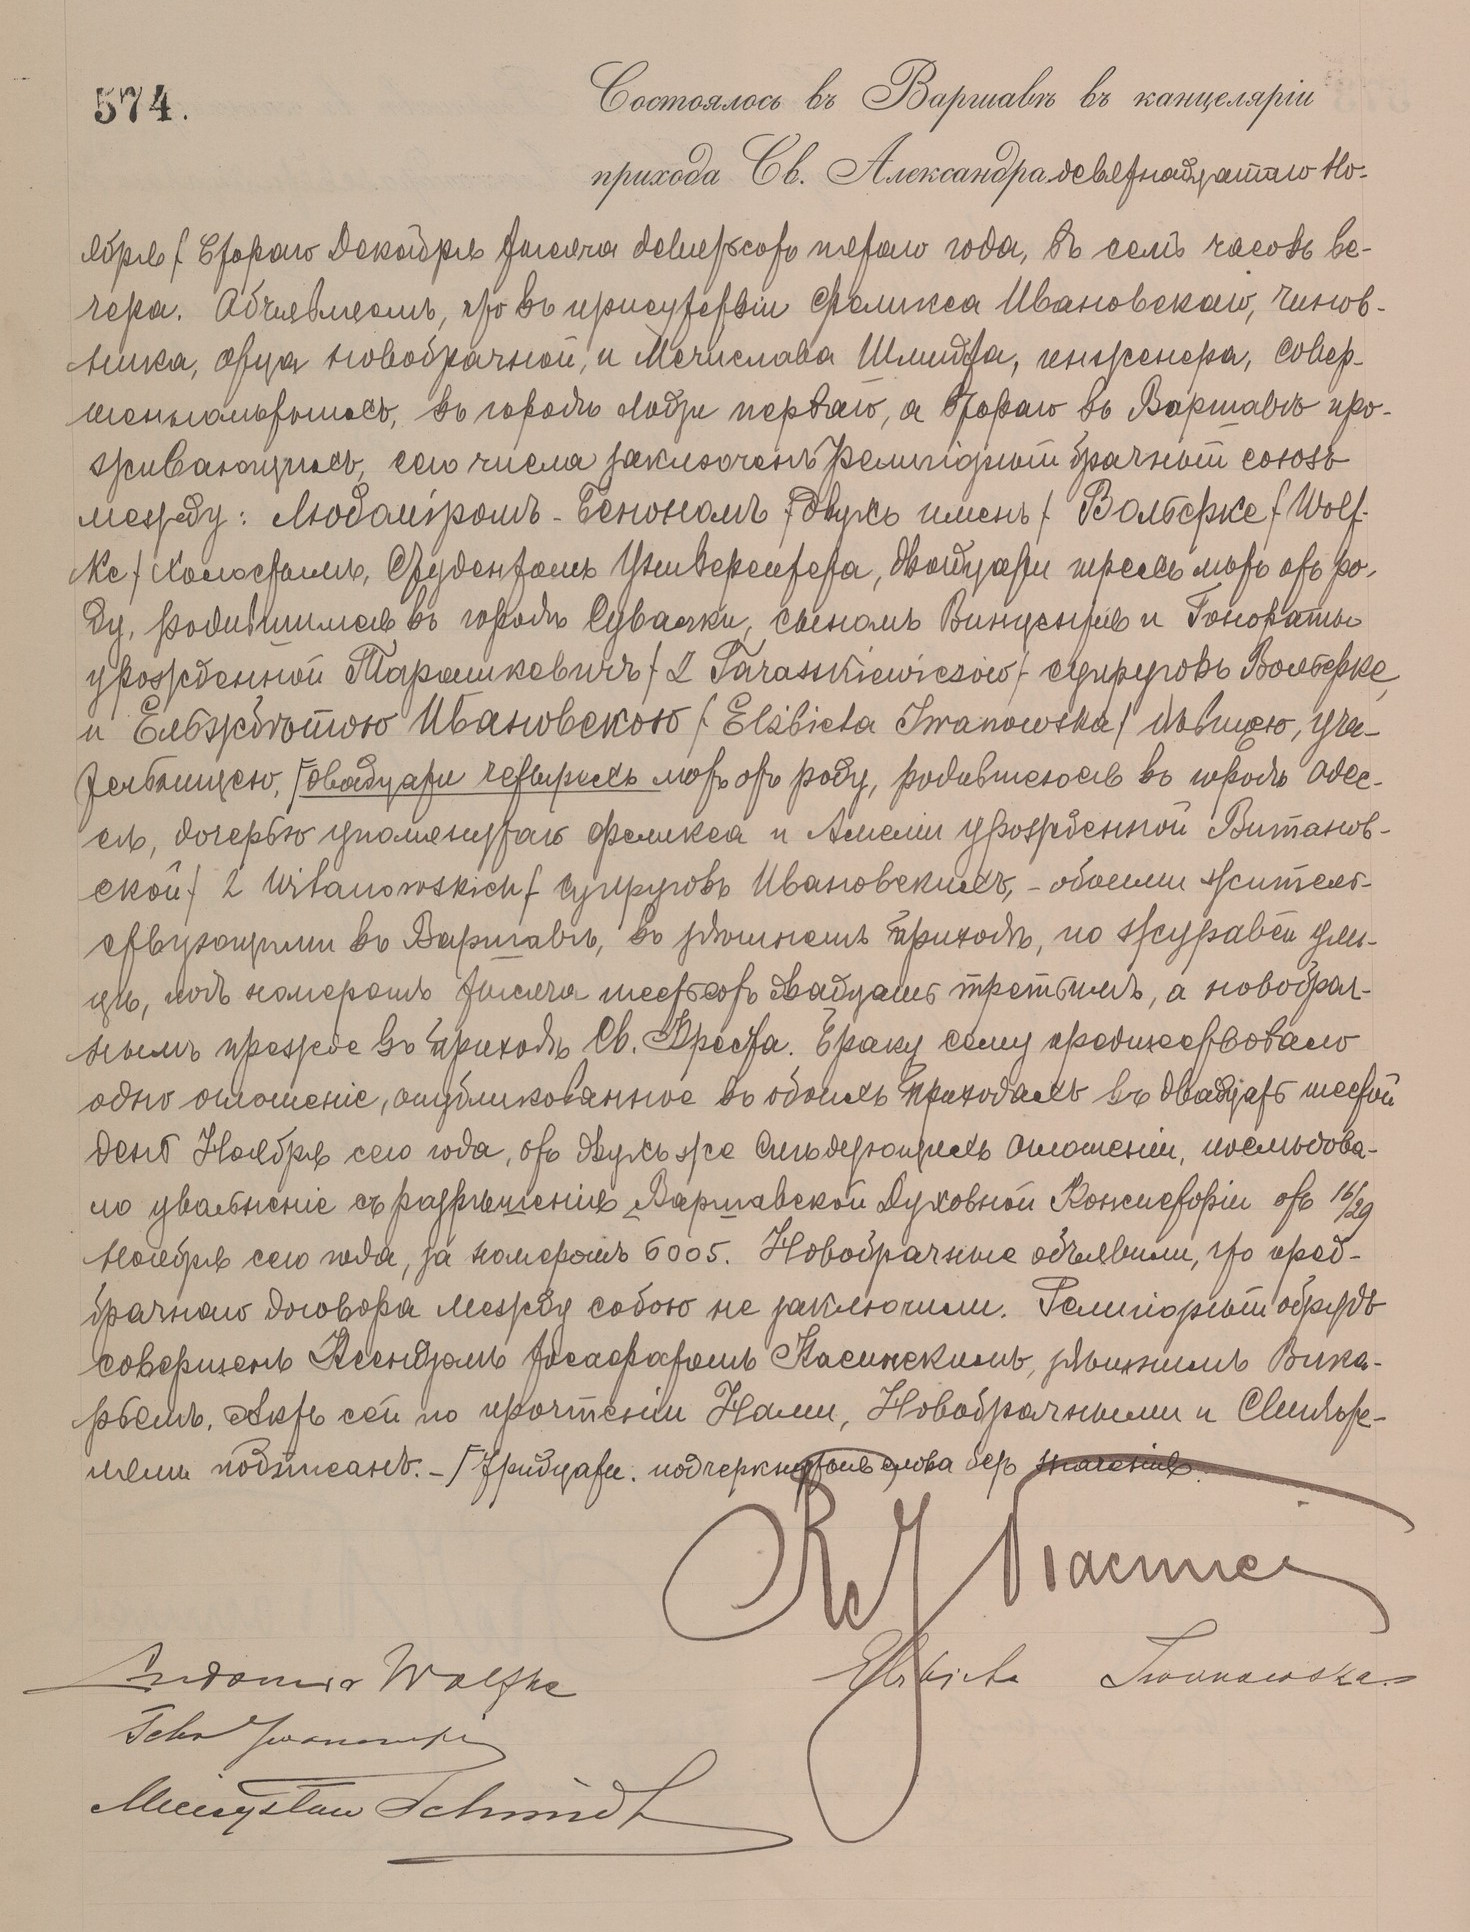 574.
Состоялось въ Варшавѣ въ канцеляріи
прихода Св. Александра девятнадцатаго Но-
ября / Втораго Декабря тысяча девятьсотъ пятаго года, въ семь часовъ ве-
чера. Объявляемъ, что въ присутствіи Феликса Ивановскаго, чинов-
ника, отца новобрачной, и Мечислава Шмидта, инженера, совер-
шеннолѣтнихъ, въ городѣ Лодзи перваго, а втораго въ Варшавѣ про-
живающихъ, сего числа заключенъ религіозный брачный союзъ
между: Людоміромъ-Бенономъ / двухъ именъ / Вольфке / Wolf-
ke / холостымъ, студентомъ Университета, двадцати трехъ лѣтъ отъ ро-
ду, родившимся въ городѣ Сувалки, сыномъ Винцентія и Гонораты
урожденной Тарашкевичъ / Z Taraszkiewiczów / супруговъ Вольфке,
и Ельжбѣтою Ивановскою / Elżbieta Iwanowska / дѣвицею, учи-
тельницею, / двадцати четырехъ лѣтъ отъ роду, родившеюся въ городѣ Одес-
сѣ, дочерью упомянутаго Феликса и Амеліи урожденной Витанов-
ской / Z Witanowskich / супруговъ Ивановскихъ, - обоими житель-
ствующими въ Варшавѣ, въ здѣшнемъ приходѣ, по Журавей ули-
цѣ, подъ номеромъ тысяча шестьсотъ двадцать третьимъ, а новобрач-
нымъ прежде въ приходѣ Св. Креста. Браку сему предшествовало
одно оглашеніе, опубликованное въ обоихъ приходахъ въ двадцать шестой
день Ноября сего года, отъ двухъ же слѣдующихъ оглашеніи, послѣдова-
ло увольненіе съ разрѣшенія Варшавской Духовной Консисторіи отъ 16/29
Ноября сего года, за номеромъ 6005. Новобрачные объявили, что пред-
брачнаго договора между собою не заключили. Религіозный обрядъ
совершенъ Ксендзомъ Іосафатомъ Касинскимъ, здѣшнимъ Вика-
ріемъ. Актъ сей по прочтеніи Нами, Новобрачными и Свидѣте-
лями подписанъ. - / тридцати. подчеркнутые слова безъ значенія.
Ludomir Wolfke
Elżbieta Iwanowska
Feliks Iwanowski
Mieczysław Schmidt